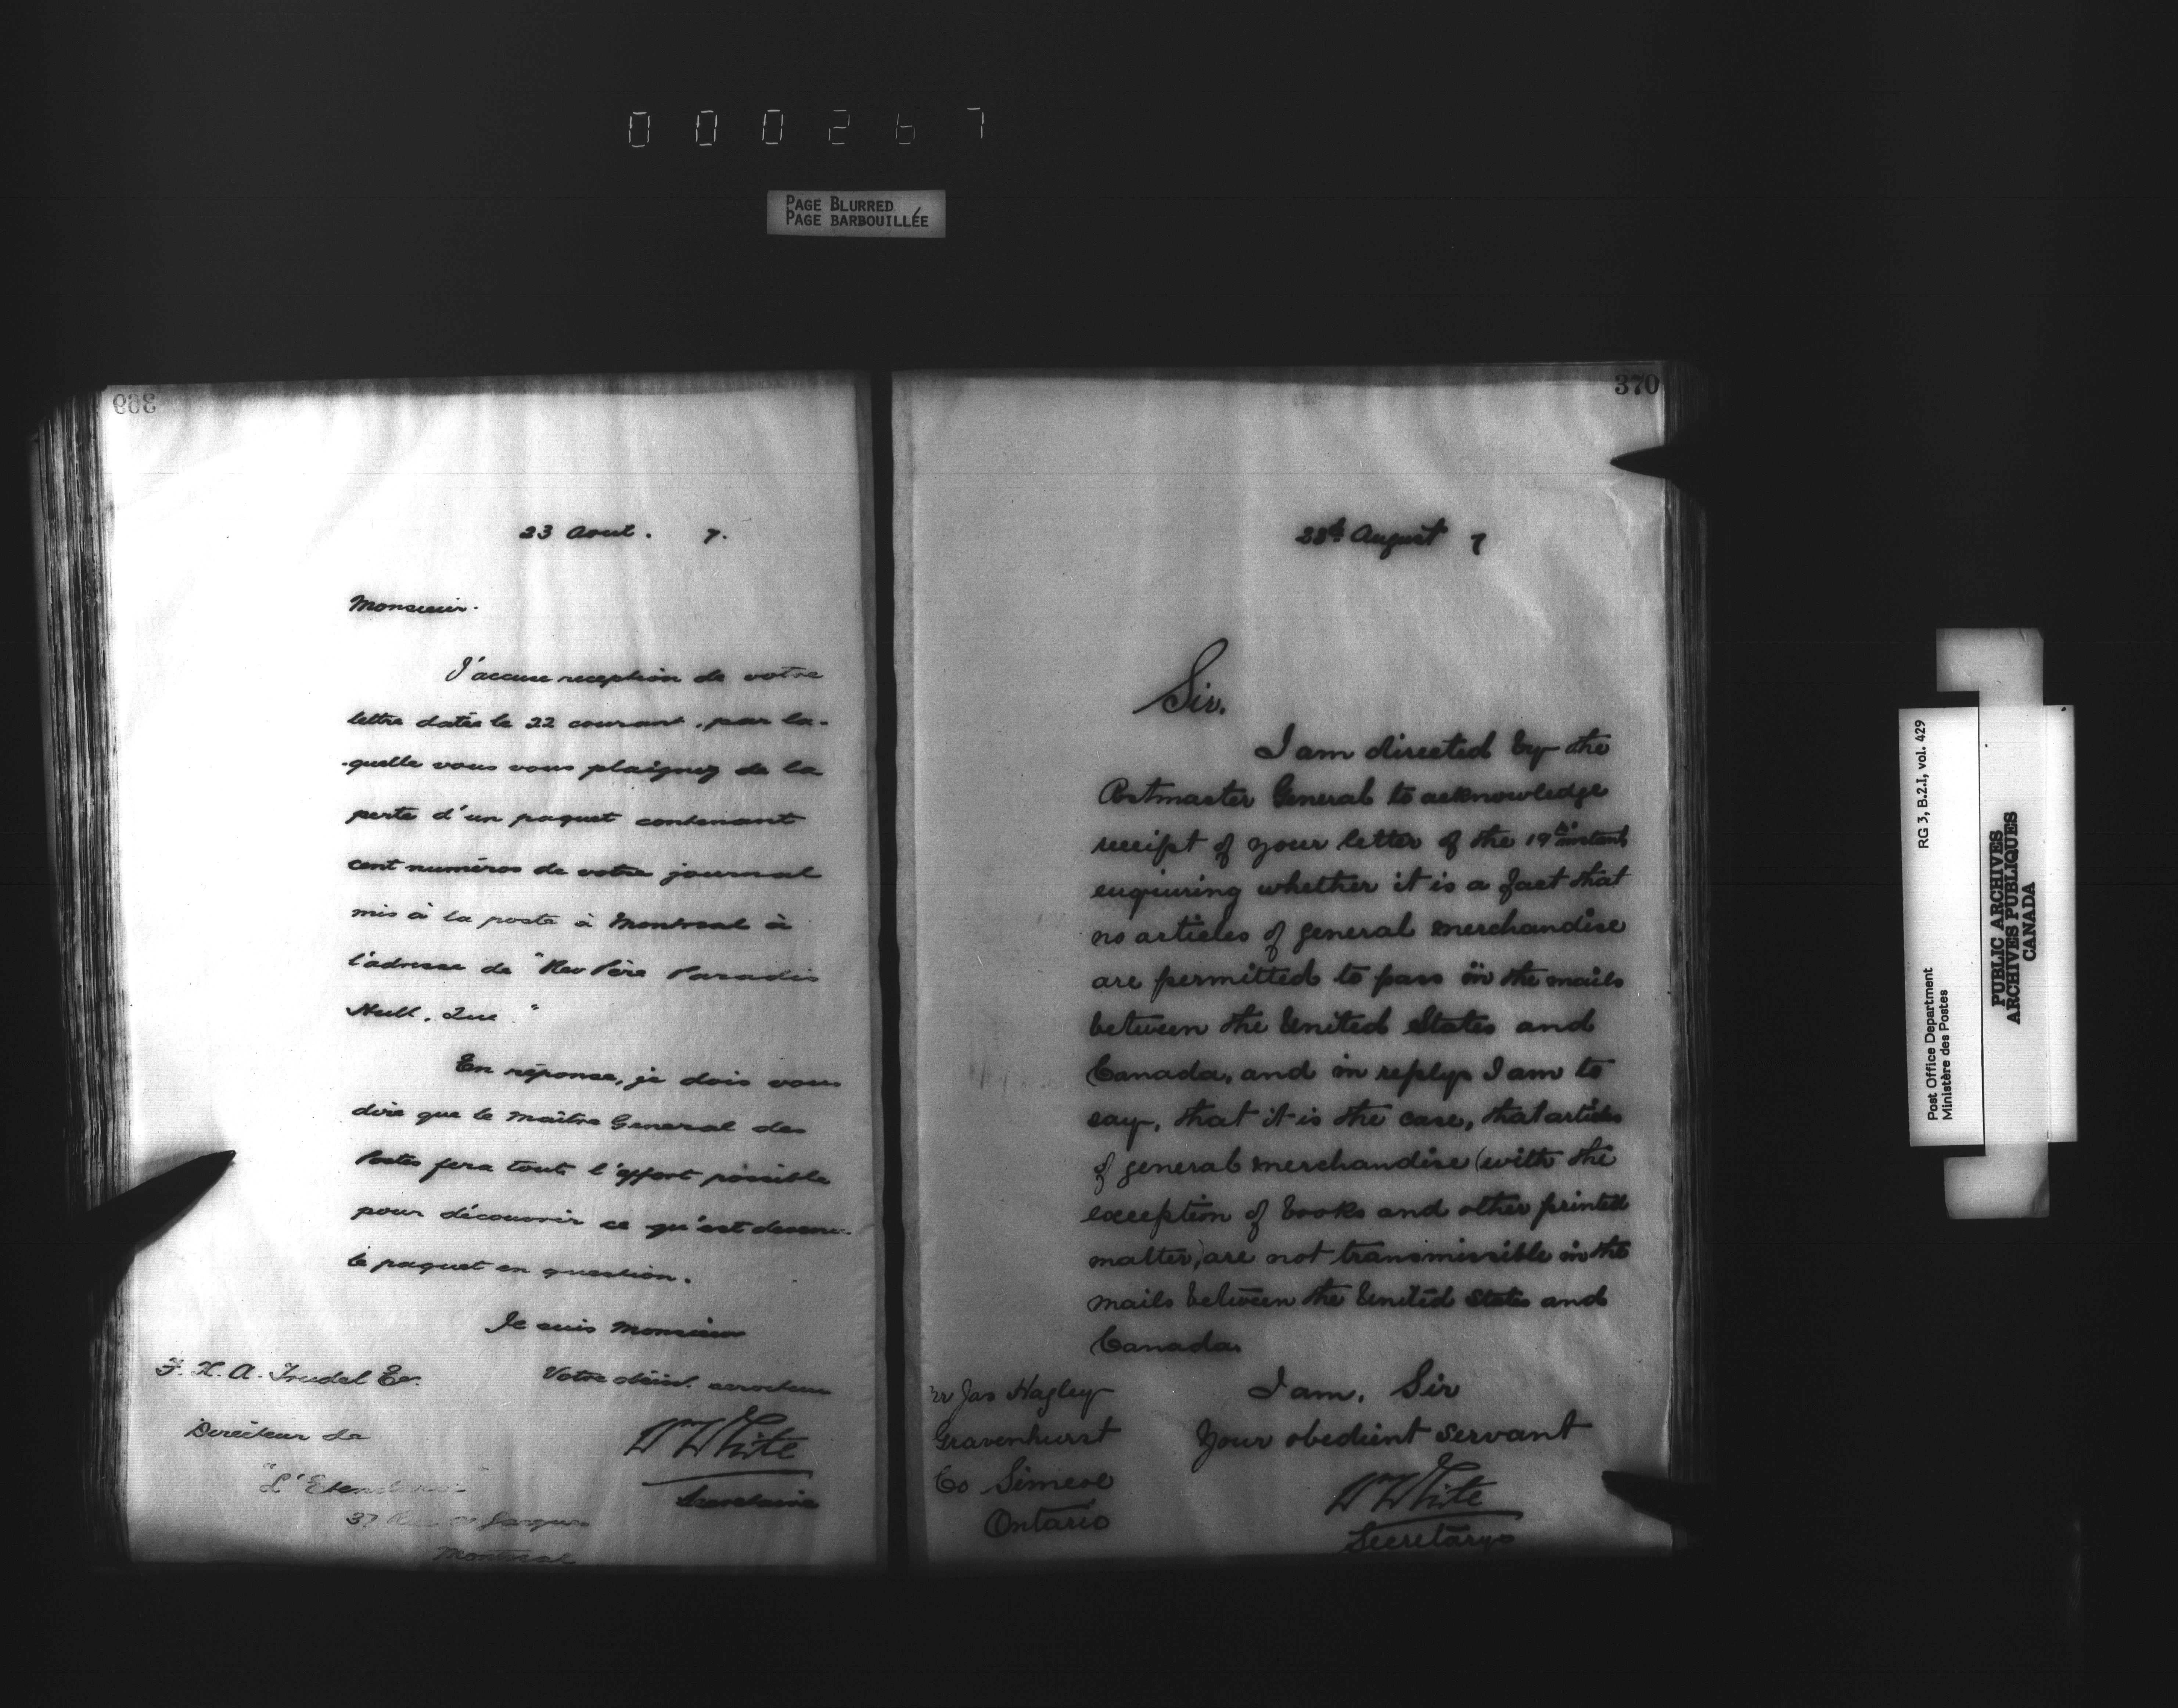 000267
PAGE BLURRED
PAGE BARBOUILLÉE
369
23 Aout. 7.
Monsieur.
J'accuse reception de votre
lettre datée le 22 courant, par la-
-quelle vous vous plaignez de la
perte d'un paquet contenant
cent numéros de votre journal
mis à la poste à Montreal à
l'adresse de "Rev Père Paradis
Hull, Que"
En réponse, je dois vous
dire que le Maître General des
Postes fera tout l'effort possible
pour découvrir ce qu'est devenu
le paquet en question.
Je suis Monsieur
Votre obéist. serviteur
Wm White
Secretaire
F. X. A. Trudel Er.
Directeur de
"L'Etendard"
37 Rue Jacques
Montreal
370
23d August 7
Sir.
I am directed by the
Postmaster General to acknowledge
receipt of your letter of the 19th instant
enquiring whether it is a fact that
no articles of general merchandise
are permitted to pass in the mails
between the United States and
Canada, and in reply I am to
say, that it is the case, that articles
of general merchandise (with the
exception of books and other printed
matter) are not transmissible in the
mails between the United States and
Canada.
I am, Sir
Your obedient servant
Wm White
Secretary
Mr Jas Hagley
Gravenhurst
Co Simcoe
Ontario
Post Office Department
Ministère des Postes
RG 3, B.2.1, vol. 429
PUBLIC ARCHIVES
ARCHIVES PUBLIQUES
CANADA